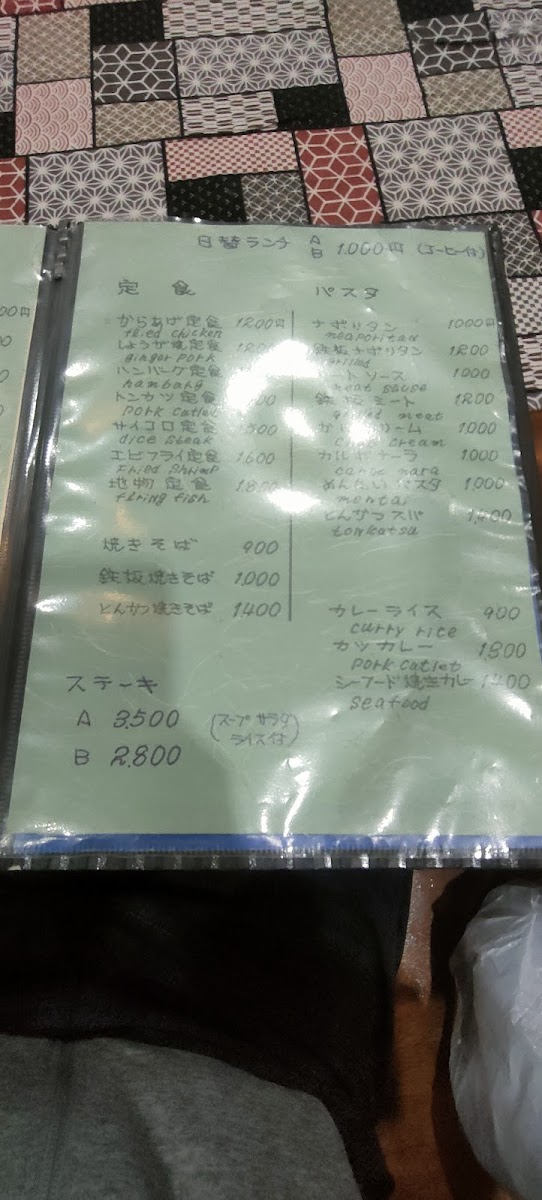 日替ランチ A B 1.000円 (コーヒー付)
定食
からあげ定食 1200円
fried chicken
しょうが焼定食
ginger pork
ハンバーグ定食
hambarg
トンカツ定食
pork cutlet
サイコロ定食
dice steak
エビフライ定食 1.600
fried shrimp
地物定食 1.800
flring fish
焼きそば 900
鉄板焼きそば 1.000
とんかつ焼きそば 1.400
ステーキ
A 3.500
B 2.800
(スープ サラダ
ライス付)
パスタ
ナポリタン 1000円
neaporitan
鉄板ナポリタン 1200
grilled
ソース 1000
meat sause
鉄板ミート 1200
meat
クリーム 1000
cream
カルボナーラ 1000
canbo nara
めんたいパスタ 1.000
mentai
とんかつスパ 1.400
tonkatsu
カレーライス 900
curry rice
カツカレー 1.300
pork cutlet
シーフード焼きカレー 1400
seafood